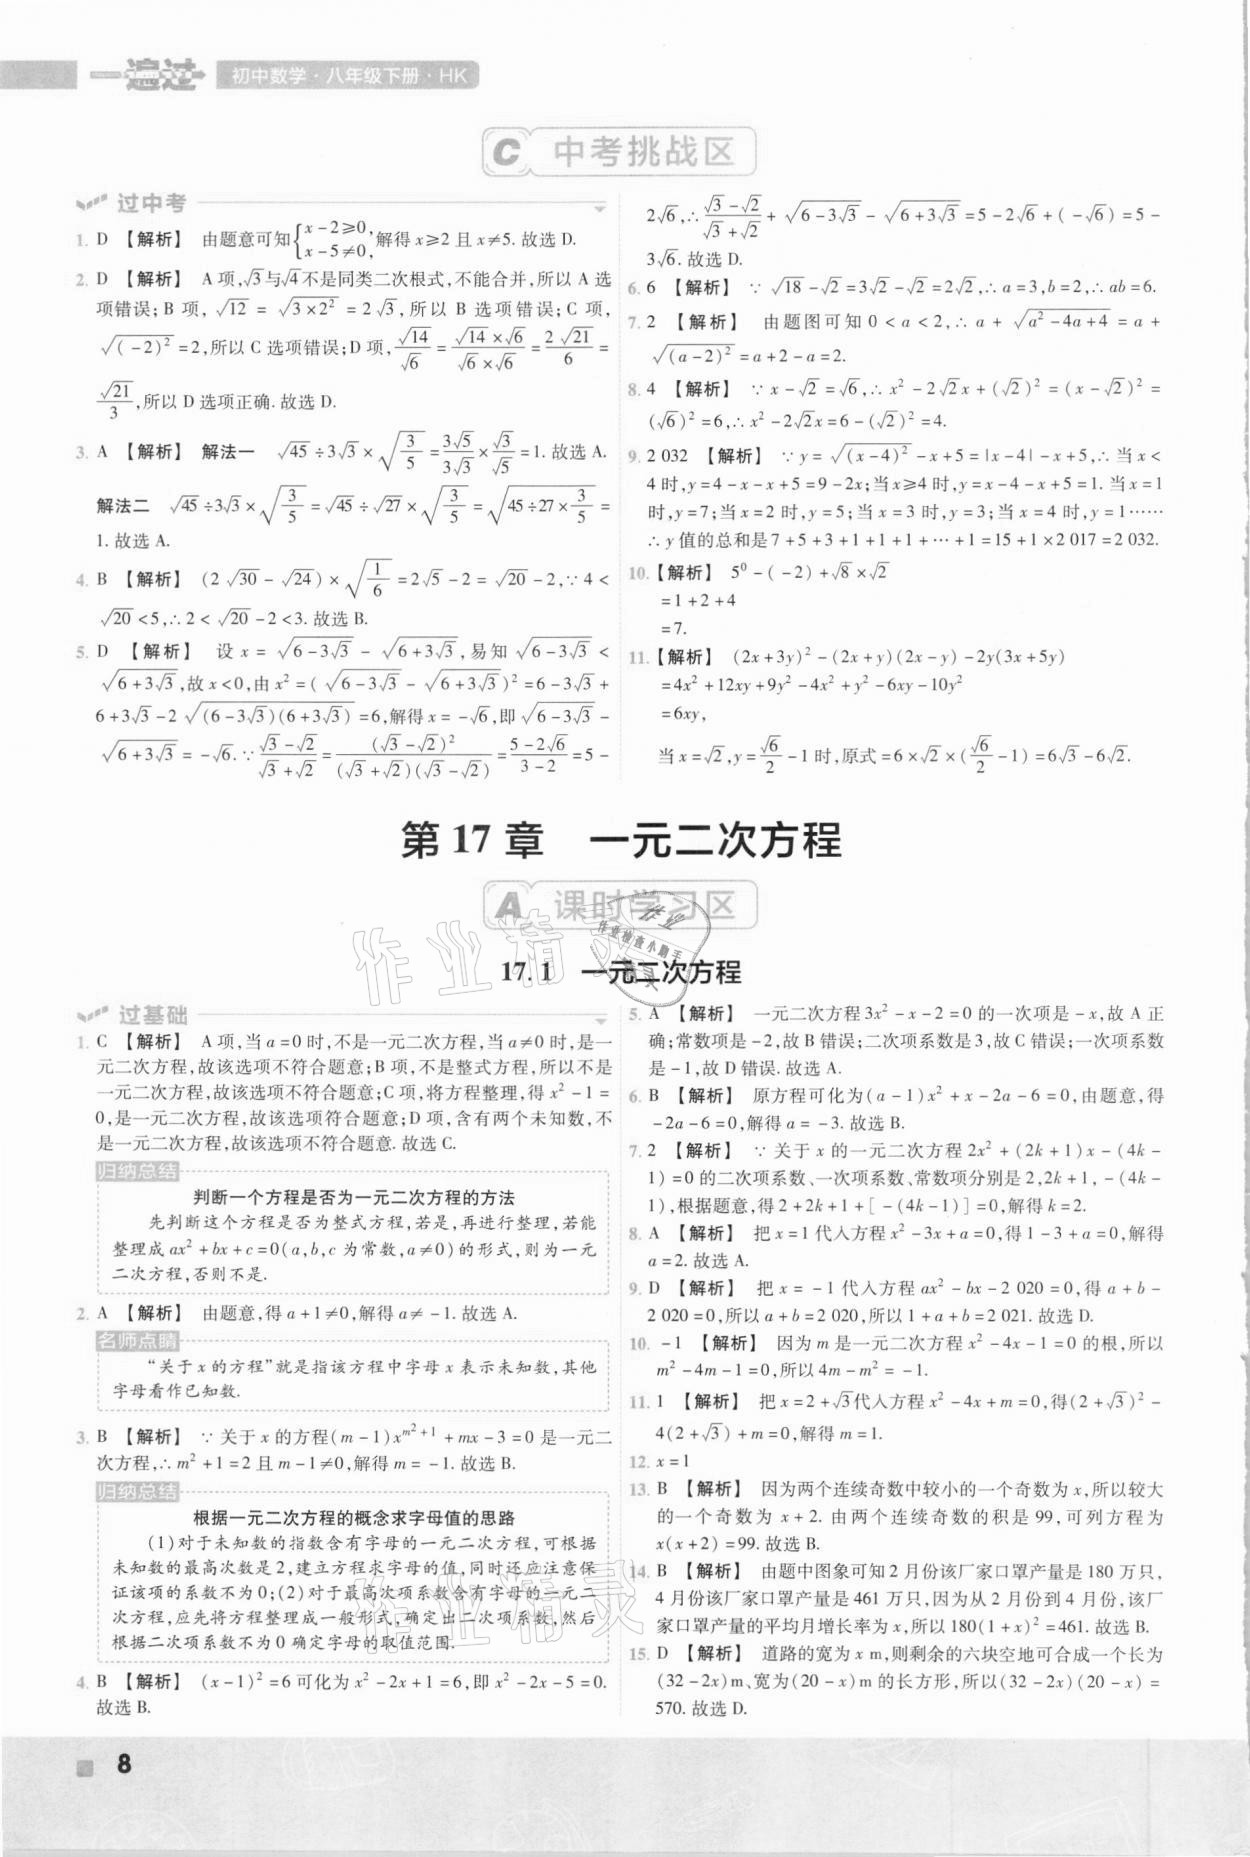 一遍过 初中数学·八年级下册·HK
C 中考挑战区
过中考
1. D 【解析】 由题意可知{x-2≥0, x-5≠0, 解得 x≥2 且 x≠5. 故选 D.
2. D 【解析】 A 项,√3与√4不是同类二次根式,不能合并,所以 A 选
项错误;B 项,√12 = √(3×2²) = 2√3,所以 B 选项错误;C 项,
√(-2)² =2,所以 C 选项错误;D 项,√14/√6 = (√14×√6)/(√6×√6) = 2√21/6 =
√21/3,所以 D 选项正确. 故选 D.
3. A 【解析】 解法一 √45÷3√3×√(3/5) = 3√5/3√3 × √3/√5 =1. 故选 A.
解法二 √45÷3√3×√(3/5) = √45÷√27×√(3/5) = √(45÷27×3/5) =
1. 故选 A.
4. B 【解析】 (2√30-√24)×√(1/6) =2√5-2=√20-2,∵4<
√20<5,∴2<√20-2<3. 故选 B.
5. D 【解析】 设 x = √(6-3√3) - √(6+3√3),易知√(6-3√3) <
√(6+3√3),故 x<0,由 x²=(√(6-3√3)-√(6+3√3))²=6-3√3+
6+3√3-2√((6-3√3)(6+3√3))=6,解得 x=-√6,即√(6-3√3)-
√(6+3√3)=-√6. ∵(√3-√2)/(√3+√2)=(√3-√2)²/((√3+√2)(√3-√2))=(5-2√6)/(3-2)=5-
2√6,∴(√3-√2)/(√3+√2)+√(6-3√3)-√(6+3√3)=5-2√6+(-√6)=5-
3√6. 故选 D.
6. 6 【解析】 ∵√18-√2=3√2-√2=2√2,∴a=3,b=2,∴ab=6.
7. 2 【解析】 由题图可知 0<a<2,∴a+√(a²-4a+4)=a+
√(a-2)²=a+2-a=2.
8. 4 【解析】 ∵x-√2=√6,∴x²-2√2x+(√2)²=(x-√2)²=
(√6)²=6,∴x²-2√2x=6-(√2)²=4.
9. 2 032 【解析】 ∵y=√(x-4)²-x+5=|x-4|-x+5,∴当 x<
4 时,y=4-x-x+5=9-2x;当 x≥4 时,y=x-4-x+5=1. 当 x=1
时,y=7;当 x=2 时,y=5;当 x=3 时,y=3;当 x=4 时,y=1……
∴y 值的总和是 7+5+3+1+1+1+…+1=15+1×2 017=2 032.
10. 【解析】 5⁰-(-2)+√8×√2
=1+2+4
=7.
11. 【解析】 (2x+3y)²-(2x+y)(2x-y)-2y(3x+5y)
=4x²+12xy+9y²-4x²+y²-6xy-10y²
=6xy,
当 x=√2,y=√6/2-1 时,原式=6×√2×(√6/2-1)=6√3-6√2.
第 17 章 一元二次方程
A 课时学习区
17.1 一元二次方程
过基础
1. C 【解析】 A 项,当 a=0 时,不是一元二次方程,当 a≠0 时,是一
元二次方程,故该选项不符合题意;B 项,不是整式方程,所以不是
一元二次方程,故该选项不符合题意;C 项,将方程整理,得 x²-1=
0,是一元二次方程,故该选项符合题意;D 项,含有两个未知数,不
是一元二次方程,故该选项不符合题意. 故选 C.
归纳总结
判断一个方程是否为一元二次方程的方法
先判断这个方程是否为整式方程,若是,再进行整理,若能
整理成 ax²+bx+c=0(a,b,c 为常数,a≠0)的形式,则为一元
二次方程,否则不是.
2. A 【解析】 由题意,得 a+1≠0,解得 a≠-1. 故选 A.
名师点睛
“关于 x 的方程”就是指该方程中字母 x 表示未知数,其他
字母看作已知数.
3. B 【解析】 ∵关于 x 的方程(m-1)x^(m²+1)+mx-3=0 是一元二
次方程,∴m²+1=2 且 m-1≠0,解得 m=-1. 故选 B.
归纳总结
根据一元二次方程的概念求字母值的思路
(1)对于未知数的指数含有字母的一元二次方程,可根据
未知数的最高次数是 2,建立方程求字母的值,同时还应注意保
证该项的系数不为 0;(2)对于最高次项系数含有字母的一元二
次方程,应先将方程整理成一般形式,确定出二次项系数,然后
根据二次项系数不为 0 确定字母的取值范围.
4. B 【解析】 (x-1)²=6 可化为 x²-2x+1=6,即 x²-2x-5=0.
故选 B.
5. A 【解析】 一元二次方程 3x²-x-2=0 的一次项是-x,故 A 正
确;常数项是-2,故 B 错误;二次项系数是 3,故 C 错误;一次项系数
是-1,故 D 错误. 故选 A.
6. B 【解析】 原方程可化为(a-1)x²+x-2a-6=0,由题意,得
-2a-6=0,解得 a=-3. 故选 B.
7. 2 【解析】 ∵关于 x 的一元二次方程 2x²+(2k+1)x-(4k-
1)=0 的二次项系数、一次项系数、常数项分别是 2,2k+1,-(4k-
1),根据题意,得 2+2k+1+[-(4k-1)]=0,解得 k=2.
8. A 【解析】 把 x=1 代入方程 x²-3x+a=0,得 1-3+a=0,解得
a=2. 故选 A.
9. D 【解析】 把 x=-1 代入方程 ax²-bx-2 020=0,得 a+b-
2 020=0,所以 a+b=2 020,所以 1+a+b=2 021. 故选 D.
10. -1 【解析】 因为 m 是一元二次方程 x²-4x-1=0 的根,所以
m²-4m-1=0,所以 4m-m²=-1.
11. 1 【解析】 把 x=2+√3代入方程 x²-4x+m=0,得(2+√3)²-
4(2+√3)+m=0,解得 m=1.
12. x=1
13. B 【解析】 因为两个连续奇数中较小的一个奇数为 x,所以较大
的一个奇数为 x+2. 由两个连续奇数的积是 99,可列方程为
x(x+2)=99. 故选 B.
14. B 【解析】 由题中图象可知 2 月份该厂家口罩产量是 180 万只,
4 月份该厂家口罩产量是 461 万只,因为从 2 月份到 4 月份,该厂
家口罩产量的平均月增长率为 x,所以 180(1+x)²=461. 故选 B.
15. D 【解析】 道路的宽为 x m,则剩余的六块空地可合成一个长为
(32-2x)m、宽为(20-x)m 的长方形,所以(32-2x)(20-x)=
570. 故选 D.
8
作业精灵
作业
作业检查小助手
作业精灵